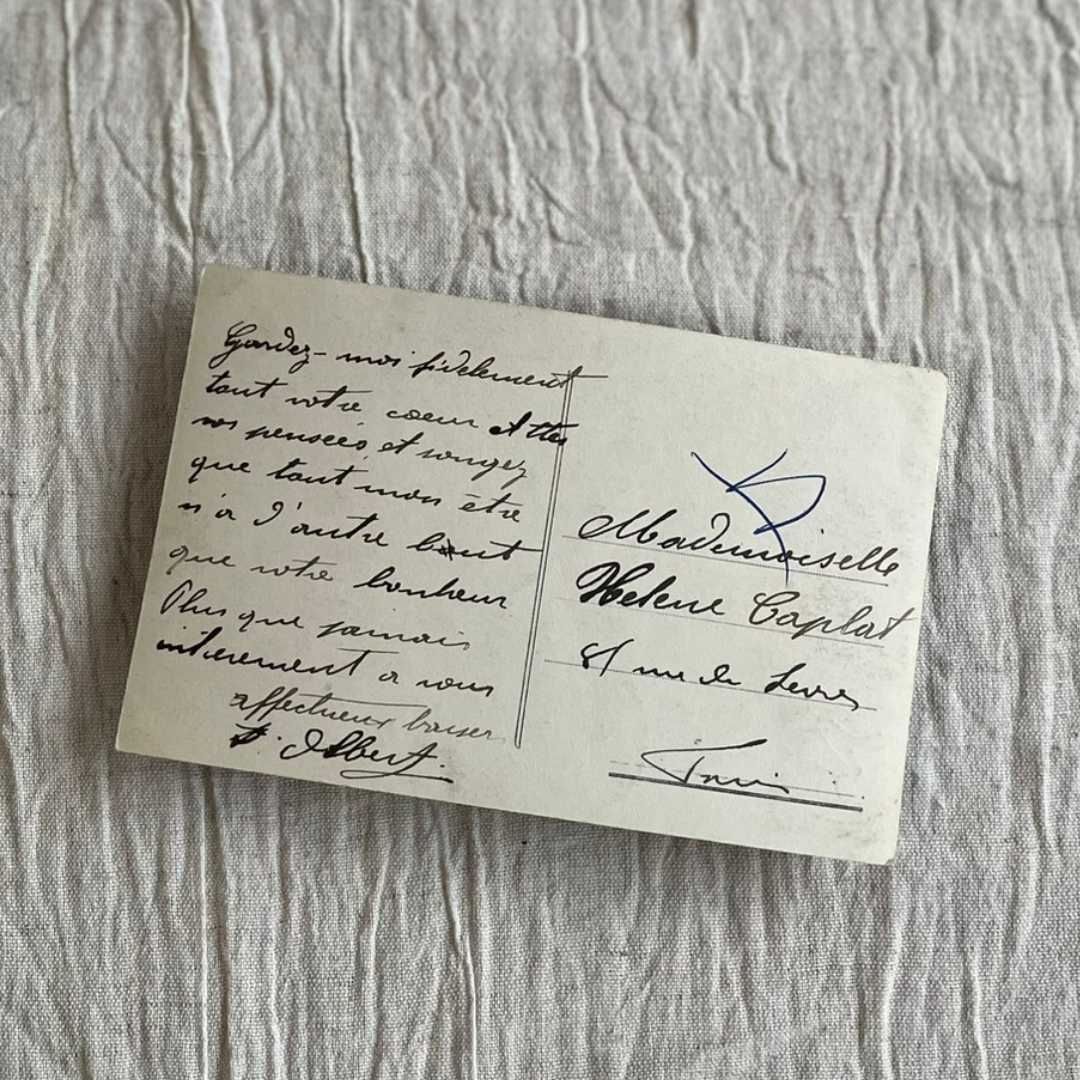 Gardez-moi fidelement
tout votre coeur et ttes
vos pensées, et songez
que tout mon être
n'a d'autre but
que votre bonheur
Plus que jamais
entierement a vous
affectueux baiser
Albert.
Mademoiselle
Helene Caplat
rue de Sevres
Paris